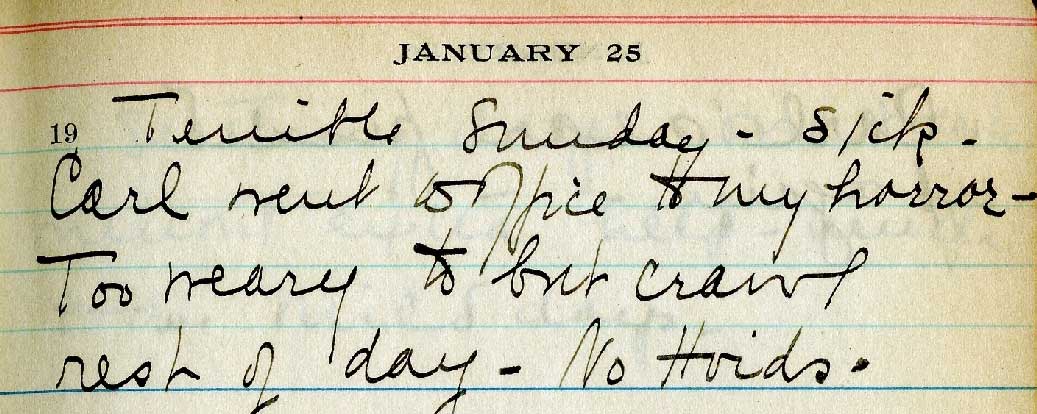 JANUARY 25
19 Terrible Sunday - sick.
Carl went to office to my horror -
Too weary to but crawl
rest of day - No Hoids.